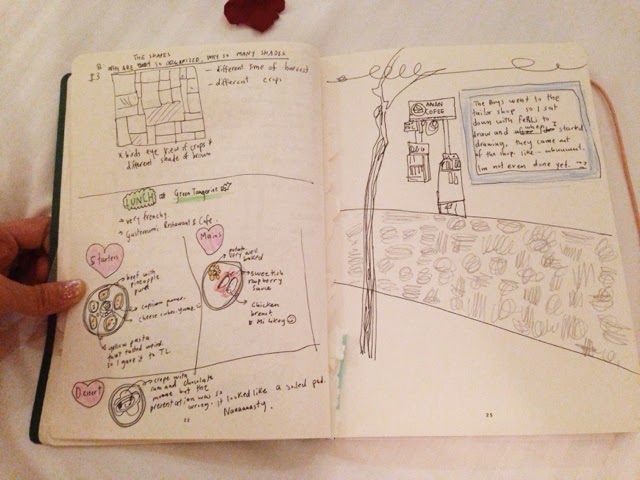 THE SHAPES
Q WHY ARE THEY SO ORGANIZED, WHY SO MANY SHADES
- different time of harvest
- different crops
x birds eye view of crops &
different shade of brown
LUNCH @ Green Tangerine
→ very frenchy.
→ Gastronomi Restaurant & Cafe.
Starters
→ beef with
pineapple
→ cheese cubes. yums
pasta
that tasted weird.
so I gave it to TL
Mains
potato
very well
baked
→ sweetish
raspberry
sauce
Chicken
breast
Mi likey
Desert
→ crepe with
and chocolate
mousse but the
presentation was so
wrong. it looked like a soiled pad.
Naaaaasty.
22
COFEE
The Boys went to the
tailor shop so I sat
down with
draw and when I started
drawing, they came out
of the shop like - whuuuuut.
Im not even done yet.
23